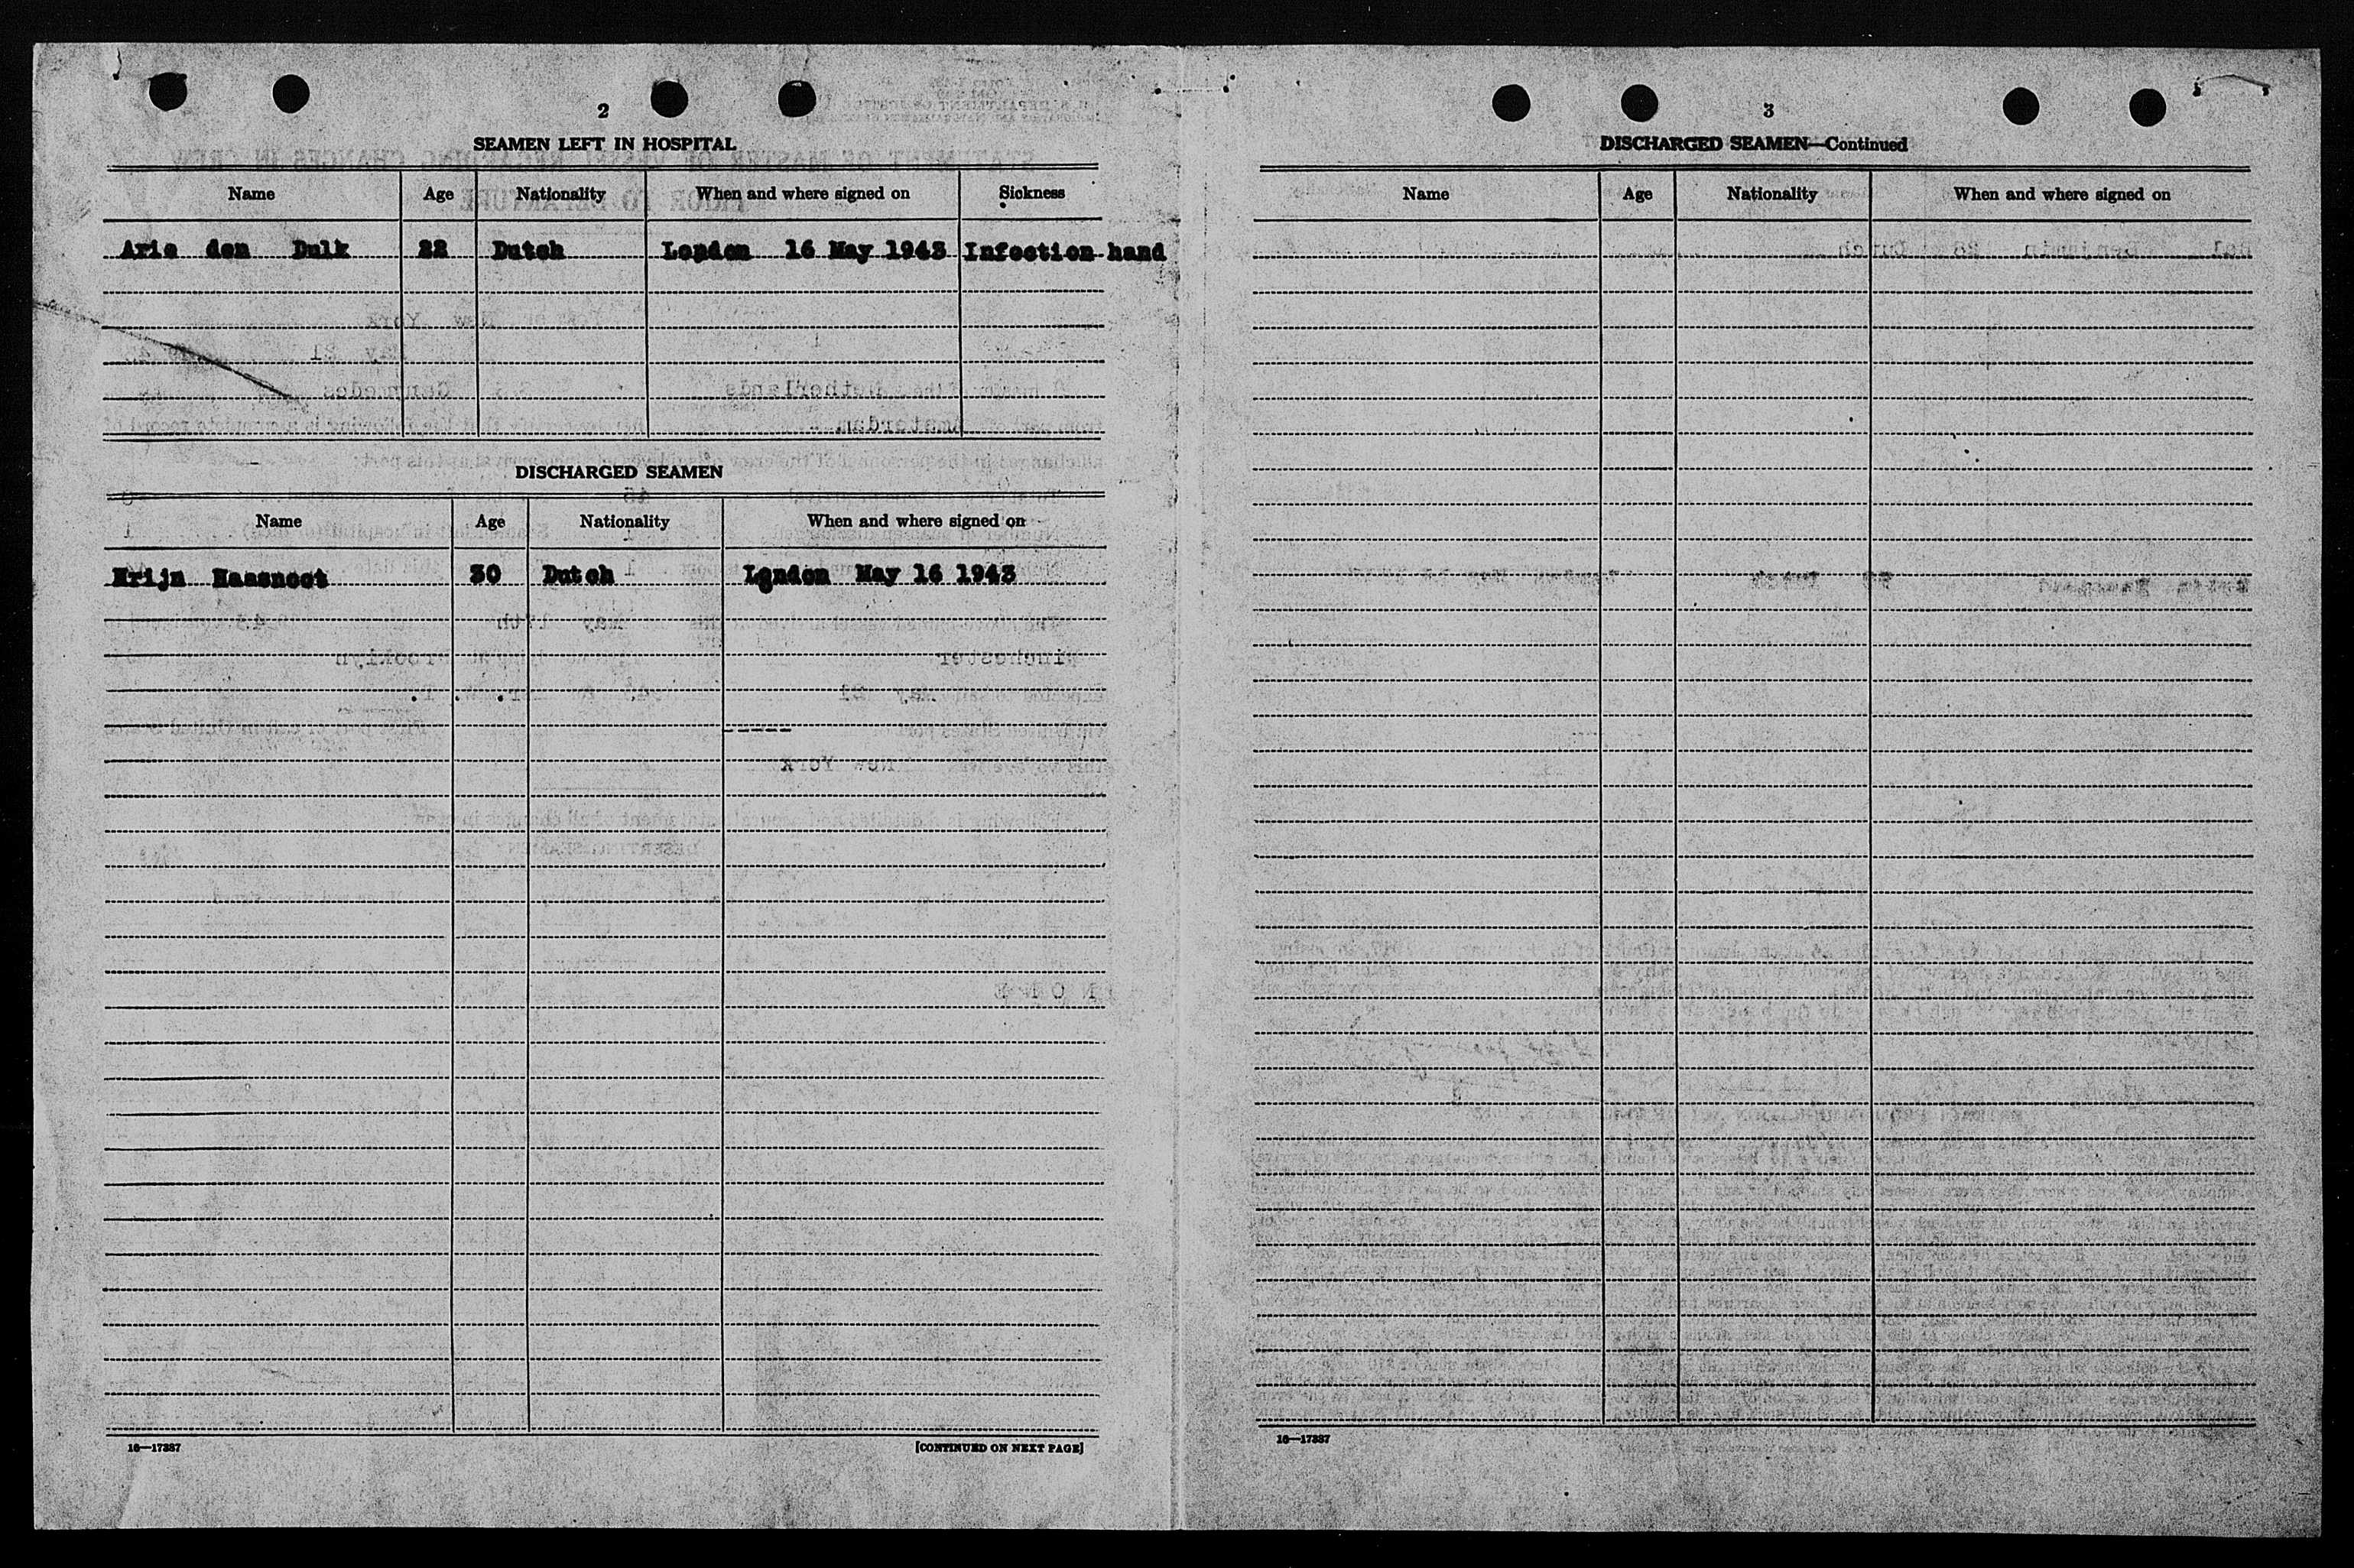 2
SEAMEN LEFT IN HOSPITAL
Name Age Nationality When and where signed on Sickness
Arie den Dulk 22 Dutch London 16 May 1943 Infection hand
DISCHARGED SEAMEN
Name Age Nationality When and where signed on
Krijn Haasnoot 30 Dutch London May 16 1943
16—17387
[CONTINUED ON NEXT PAGE]
3
DISCHARGED SEAMEN—Continued
Name Age Nationality When and where signed on
16—17387